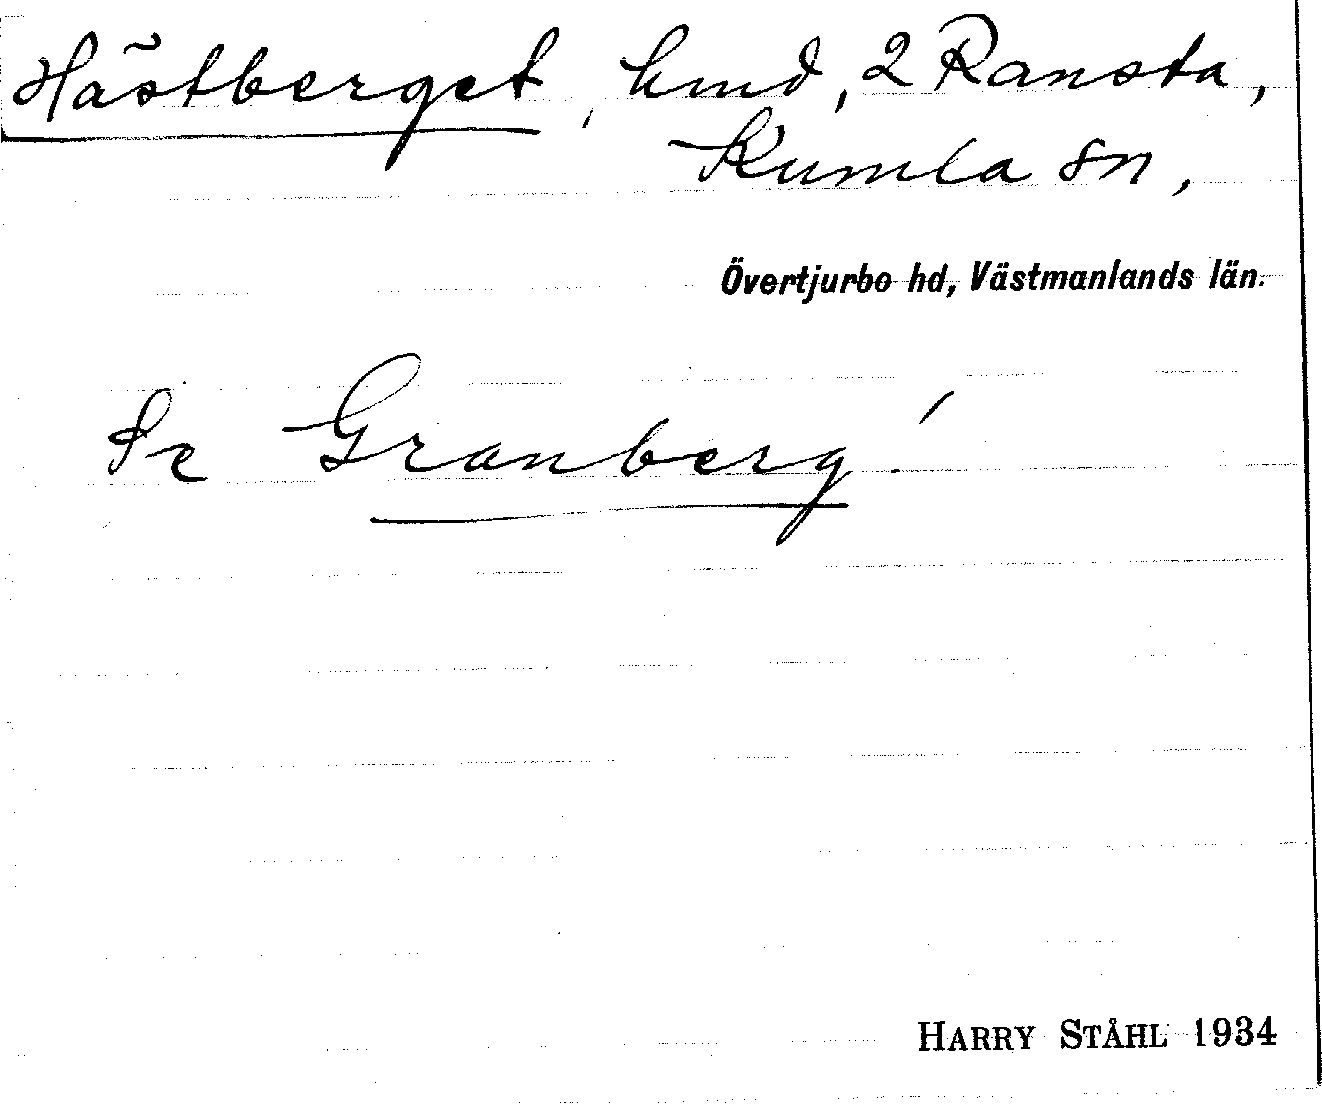 Hästberget, lmd, 2 Ransta,
Kumla sn,
Övertjurbo hd, Västmanlands län.
Se Granberg!
HARRY STÅHL 1934